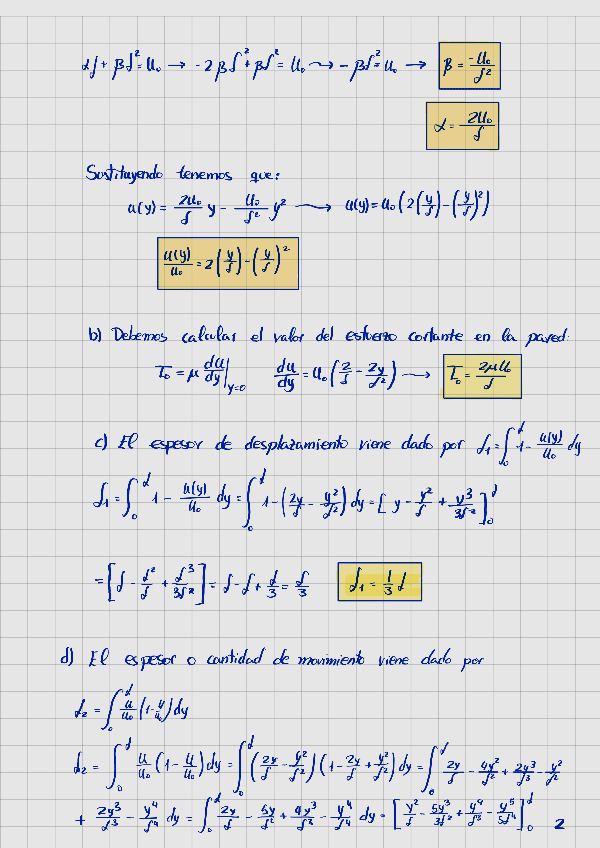 αδ + βδ² = U₀ → -2βδ² + βδ² = U₀ → -βδ² = U₀ → β = -U₀/δ²
α = -2U₀/δ
Sustituyendo tenemos que:
u(y) = 2U₀/δ y - U₀/δ² y² → u(y) = U₀(2(y/δ) - (y/δ)²)
u(y)/U₀ = 2(y/δ) - (y/δ)²
b) Debemos calcular el valor del esfuerzo cortante en la pared:
τ₀ = μ du/dy|y=0 du/dy = U₀(2/δ - 2y/δ²) → τ₀ = 2μU₀/δ
c) El espesor de desplazamiento viene dado por δ₁ = ∫₀^δ 1 - u(y)/U₀ dy
δ₁ = ∫₀^δ 1 - u(y)/U₀ dy = ∫₀^δ 1 - (2y/δ - y²/δ²) dy = [y - y²/δ + y³/3δ²]₀^δ
= [δ - δ²/δ + δ³/3δ²] = δ - δ + δ/3 = δ/3 δ₁ = 1/3 δ
d) El espesor o cantidad de movimiento viene dado por
δ₂ = ∫₀^δ u/U₀ (1 - u/U₀) dy
δ₂ = ∫₀^δ u/U₀ (1 - u/U₀) dy = ∫₀^δ (2y/δ - y²/δ²)(1 - 2y/δ + y²/δ²) dy = ∫₀^δ 2y/δ - 4y²/δ² + 2y³/δ³ - y²/δ²
+ 2y³/δ³ - y⁴/δ⁴ dy = ∫₀^δ 2y/δ - 5y/δ² + 4y³/δ³ - y⁴/δ⁴ dy = [y²/δ - 5y³/3δ² + y⁴/δ³ - y⁵/5δ⁴]₀^δ 2